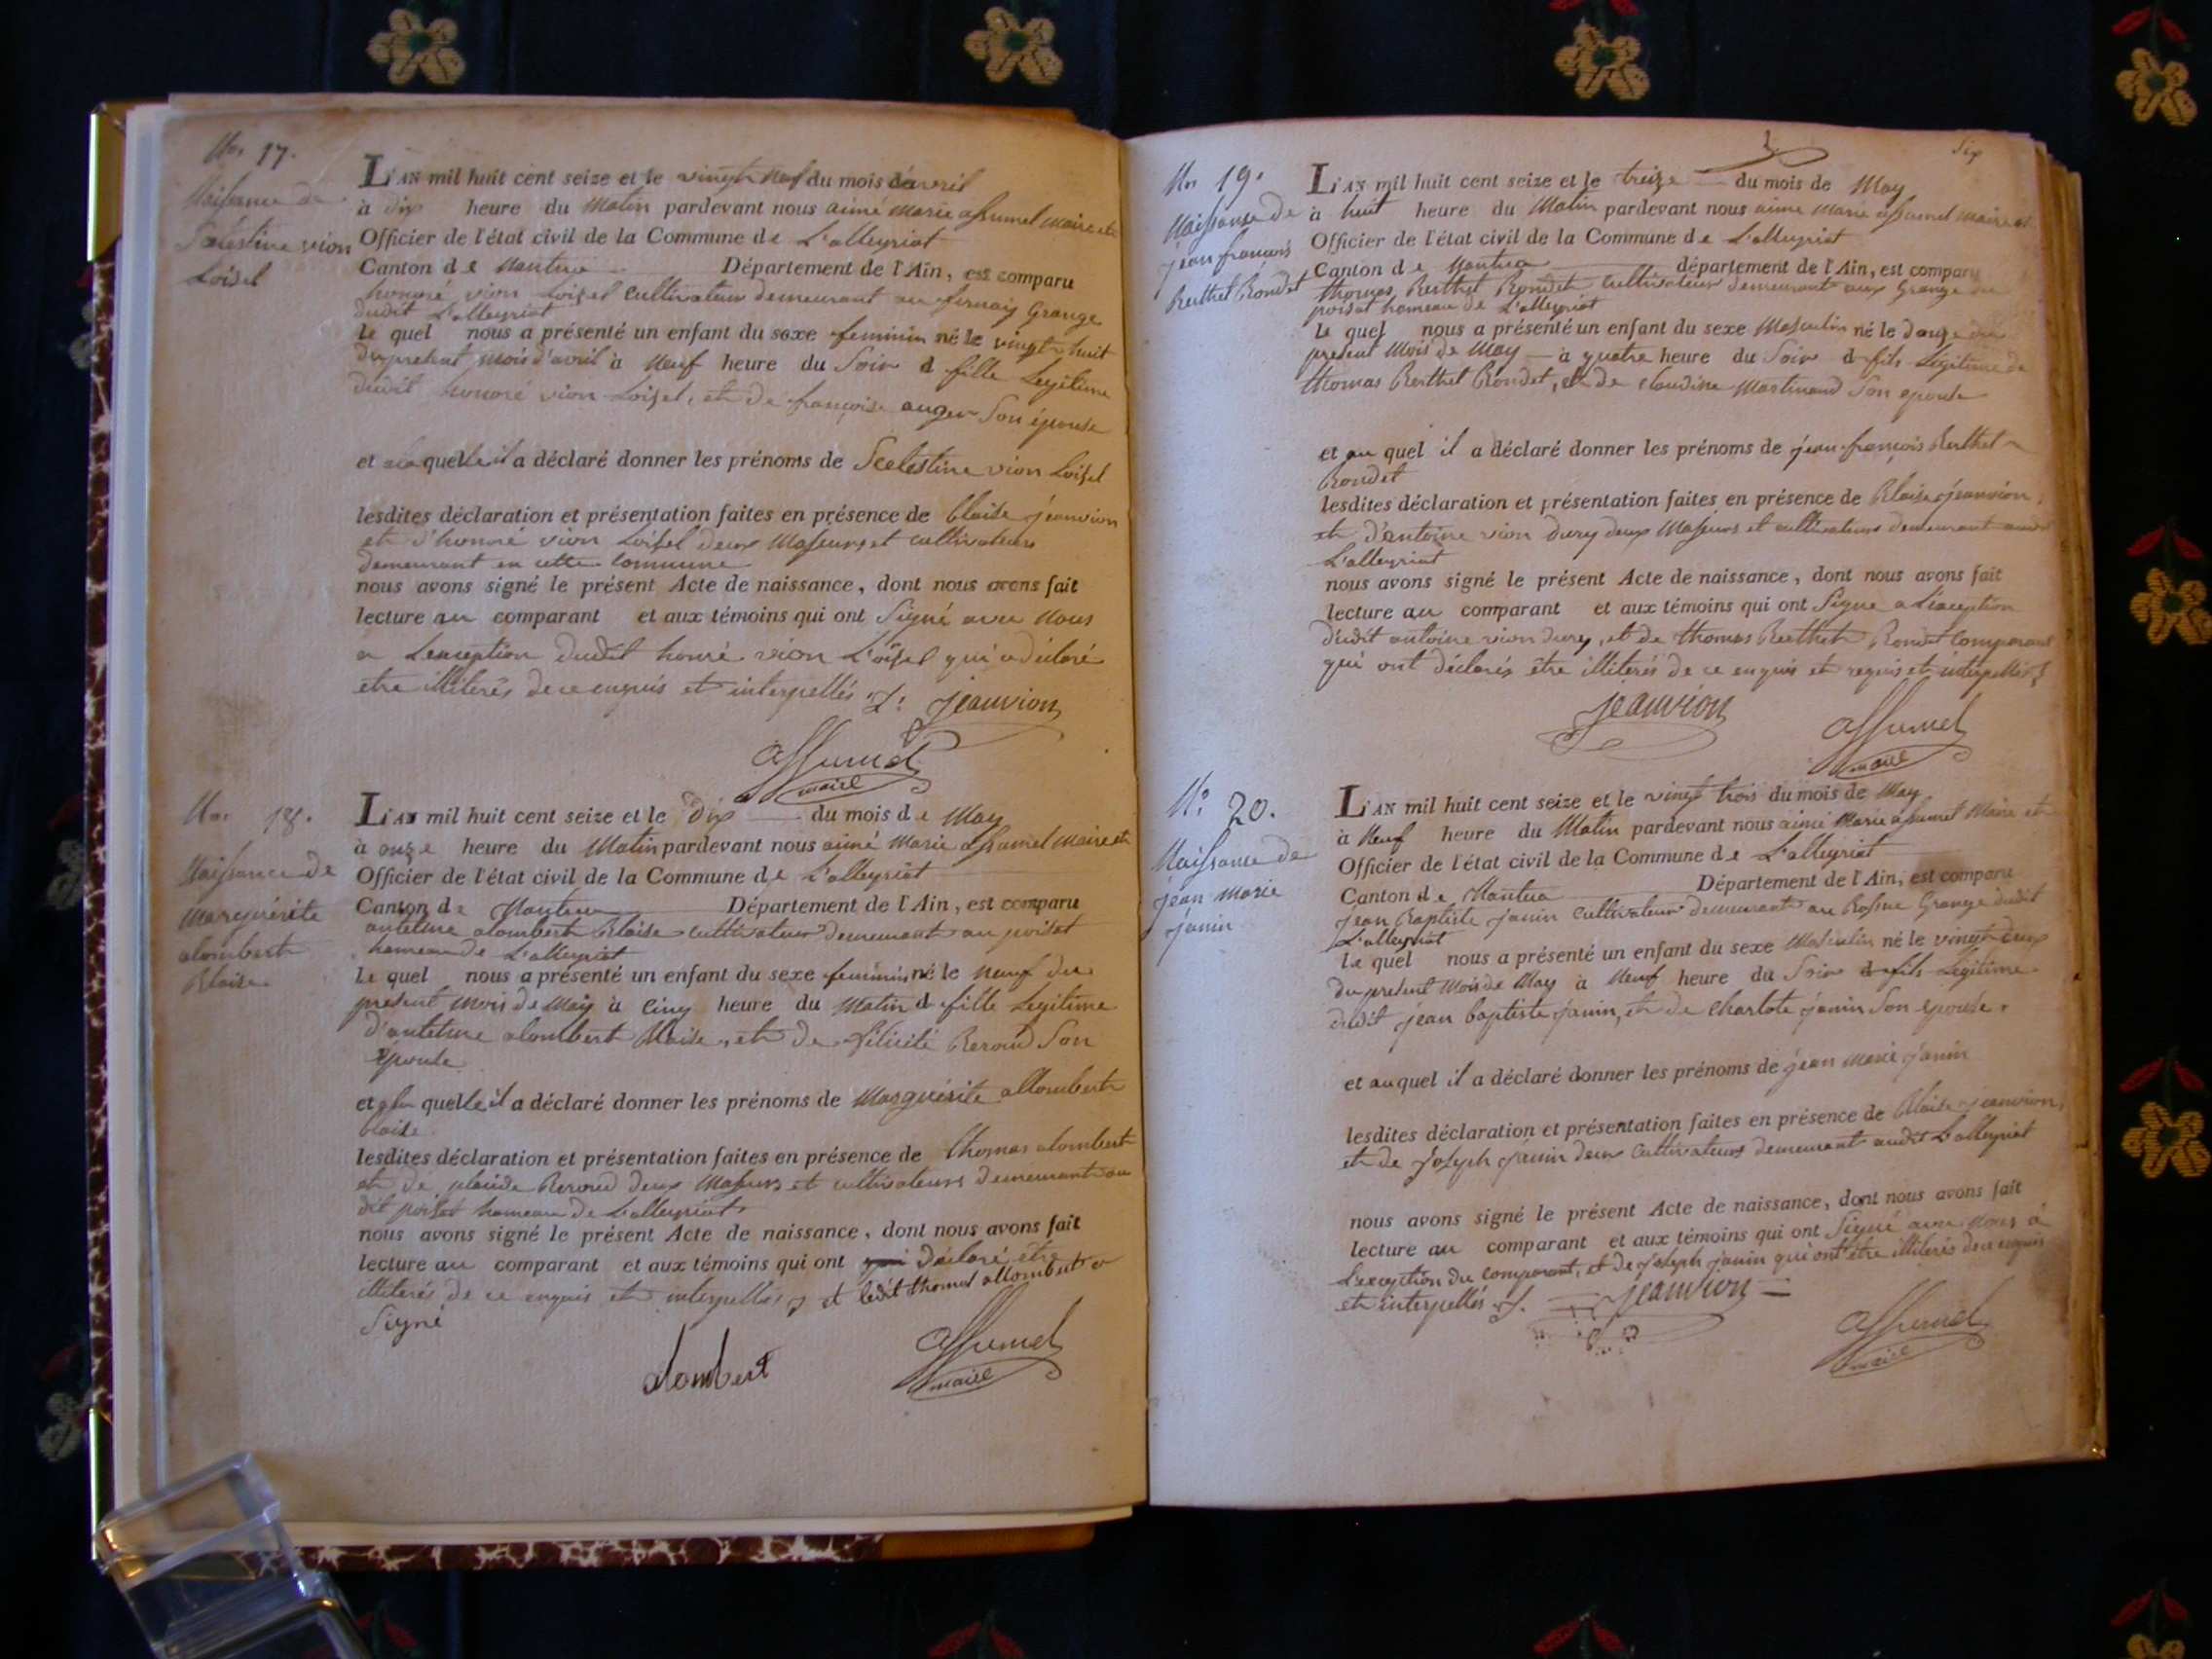 No. 17.
Naissance de
Scelestine vion
Loisel
L'AN mil huit cent seize et le vingt neuf du mois d'avril
à dix heure du Matin pardevant nous aimé marie assumel maire et
Officier de l'état civil de la Commune de L'alleyriat
Canton de Nantua Département de l'Ain, est comparu
honoré vion Loisel cultivateur demeurant au Grange
dudit L'alleyriat
Le quel nous a présenté un enfant du sexe feminin né le vingt huit
du present mois d'avril à Neuf heure du Soir d fille Legitime
dudit honoré vion Loisel, et de françoise auger Son épouse
et a la quelle il a déclaré donner les prénoms de Scelestine vion Loisel
lesdites déclaration et présentation faites en présence de blaise jeanvion
et d'honoré vion Loisel deux Majeurs et cultivateurs
demeurant en cette Commune
nous avons signé le présent Acte de naissance, dont nous avons fait
lecture au comparant et aux témoins qui ont Signé avec Nous
a Lexception dudit honoré vion L'oisel qui a déclaré
etre illiterés de ce enquis et interpellés jeanvion
assumel
maire
No. 18.
Naissance de
Marguérite
alombert
Blaise
L'AN mil huit cent seize et le dix du mois de May
à onze heure du Matin pardevant nous aimé Marie assumel Maire et
Officier de l'état civil de la Commune de L'alleyriat
Canton de Nantua Département de l'Ain, est comparu
antelme alombert Blaise cultivateur demeurant au poisat
hameau de L'alleyriat
Le quel nous a présenté un enfant du sexe feminin né le neuf du
present mois de May à Cinq heure du Matin d fille Legitime
d'antelme alombert Blaise, et de félicité Beroud Son
Epouse
et a la quelle il a déclaré donner les prénoms de Marguérite allombert
blaise
lesdites déclaration et présentation faites en présence de thomas alombert
et de placide Beroud deux Majeurs et cultivateurs demeurant au
dit poisat hameau de L'alleyriat
nous avons signé le présent Acte de naissance, dont nous avons fait
lecture au comparant et aux témoins qui ont déclaré être
illiterés de ce enquis et interpellés et ledit thomas allombert a
Signé
alombert
assumel
maire
Six
No 19.
Naissance de
jean françois
Berthet Bondet
L'AN mil huit cent seize et le treize du mois de May
à huit heure du Matin pardevant nous aimé Marie assumel maire et
Officier de l'état civil de la Commune de L'alleyriat
Canton de Nantua département de l'Ain, est comparu
thomas Berthet Bondet cultivateur demeurant aux Grange du
poisat hameau de L'alleyriat
Le quel nous a présenté un enfant du sexe Masculin né le douze du
present Mois de May à quatre heure du Soir d fils Légitime de
thomas Berthet Bondet, et de claudine Martinand Son epouse
et au quel il a déclaré donner les prénoms de jean françois Berthet
Bondet
lesdites déclaration et présentation faites en présence de Blaise jeanvion,
et d'antoine vion dury deux Majeurs et cultivateurs demeurant audit
L'alleyriat
nous avons signé le présent Acte de naissance, dont nous avons fait
lecture au comparant et aux témoins qui ont Signe a L'exception
dudit antoine vion dury, et de thomas Berthet Bondet Comparant
qui ont déclarés être illiterés de ce enquis et requis et interpellés
jeanvion
assumel
maire
No 20.
Naissance de
jean Marie
janin
L'AN mil huit cent seize et le vingt trois du mois de May
à Neuf heure du Matin pardevant nous aimé Marie assumel Maire et
Officier de l'état civil de la Commune de L'alleyriat
Canton de Nantua Département de l'Ain, est comparu
jean Baptiste janin cultivateur demeurant au Grange dudit
L'alleyriat
Le quel nous a présenté un enfant du sexe Masculin né le vingt deux
du present Mois de May à Neuf heure du Soir d fils Légitime
dudit jean baptiste janin, et de charlote janin Son epouse.
et au quel il a déclaré donner les prénoms de jean Marie janin
lesdites déclaration et présentation faites en présence de Blaise jeanvion,
et de joseph janin deux Cultivateurs demeurant audit L'alleyriat
nous avons signé le présent Acte de naissance, dont nous avons fait
lecture au comparant et aux témoins qui ont Signé avec Nous à
L'exception du comparant, et de joseph janin qui ont être illiterés de ce enquis
et interpellés jeanvion
assumel
maire